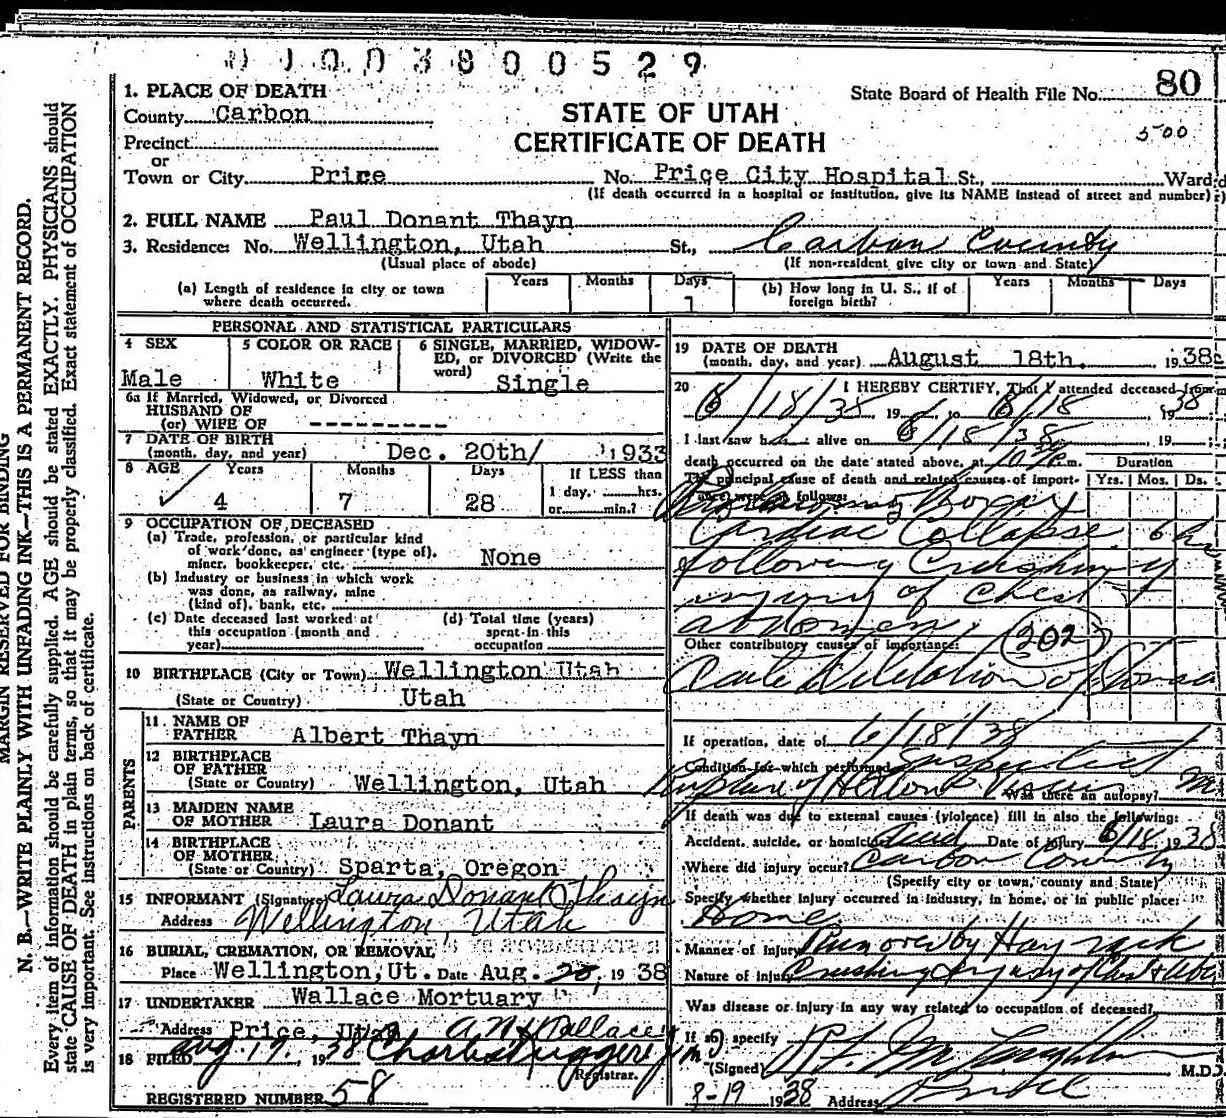 1003800529
1. PLACE OF DEATH
County Carbon
Precinct
or
Town or City Price
STATE OF UTAH
CERTIFICATE OF DEATH
State Board of Health File No. 80
500
No. Price City Hospital St., Ward
(If death occurred in a hospital or institution, give its NAME instead of street and number)
2. FULL NAME Paul Donant Thayn
3. Residence: No. Wellington, Utah St., Carbon County
(Usual place of abode) (If non-resident give city or town and State)
(a) Length of residence in city or town where death occurred. Years Months Days 1
(b) How long in U. S., if of foreign birth? Years Months Days
PERSONAL AND STATISTICAL PARTICULARS
4 SEX Male
5 COLOR OR RACE White
6 SINGLE, MARRIED, WIDOWED, or DIVORCED (Write the word) Single
6a If Married, Widowed, or Divorced
HUSBAND OF
(or) WIFE OF ---------
7 DATE OF BIRTH
(month, day, and year) Dec. 20th/ 1933
8 AGE Years 4 Months 7 Days 28
If LESS than
1 day, hrs.
or min.?
9 OCCUPATION OF DECEASED
(a) Trade, profession, or particular kind
of work done, as engineer (type of),
miner, bookkeeper, etc. None
(b) Industry or business in which work
was done, as railway, mine
(kind of), bank, etc.
(c) Date deceased last worked at
this occupation (month and
year)
(d) Total time (years)
spent in this
occupation
10 BIRTHPLACE (City or Town) Wellington Utah
(State or Country) Utah
PARENTS
11. NAME OF
FATHER Albert Thayn
12 BIRTHPLACE
OF FATHER
(State or Country) Wellington, Utah
13 MAIDEN NAME
OF MOTHER Laura Donant
14 BIRTHPLACE
OF MOTHER
(State or Country) Sparta, Oregon
15 INFORMANT (Signature) Laura Donant Thayn
Address Wellington, Utah
16 BURIAL, CREMATION, OR REMOVAL
Place Wellington, Ut. Date Aug. 20, 1938
17 UNDERTAKER Wallace Mortuary
Address Price, Utah Wallace
18 FILED Aug 19, 1938
Registrar.
REGISTERED NUMBER 58
19 DATE OF DEATH
(month, day, and year) August 18th. 1938
20 I HEREBY CERTIFY, That I attended deceased from
8/18/38, 19 to 8/18, 1938
I last saw h alive on 8/18/38, 19
death occurred on the date stated above, at 10 P.m.
The principal cause of death and related causes of importance were as follows:
Duration
Yrs. Mos. Ds.
Cardiac Collapse 6 hrs
following Crushing
injury of chest +
abdomen.
202
Other contributory causes of importance:
Acute Dilatation of Stomach
If operation, date of 8/18/38
Condition for which performed Suspected
Rupture of Hollow
Was there an autopsy?
If death was due to external causes (violence) fill in also the following:
Accident, suicide, or homicide Date of injury 8/18, 1938
Where did injury occur? Carbon County
(Specify city or town, county and State)
Specify whether injury occurred in industry, in home, or in public place:
Home
Manner of Injury Run over by Hay rack
Nature of Injury Crushing Injury of Chest + Abd
Was disease or injury in any way related to occupation of deceased?
If so, specify
(Signed) M.D.
8-19 1938 Address Price
MARGIN RESERVED FOR BINDING
N. B.—WRITE PLAINLY WITH UNFADING INK—THIS IS A PERMANENT RECORD.
Every item of information should be carefully supplied. AGE should be stated EXACTLY. PHYSICIANS should
state CAUSE OF DEATH in plain terms, so that it may be properly classified. Exact statement of OCCUPATION
is very important. See instructions on back of certificate.